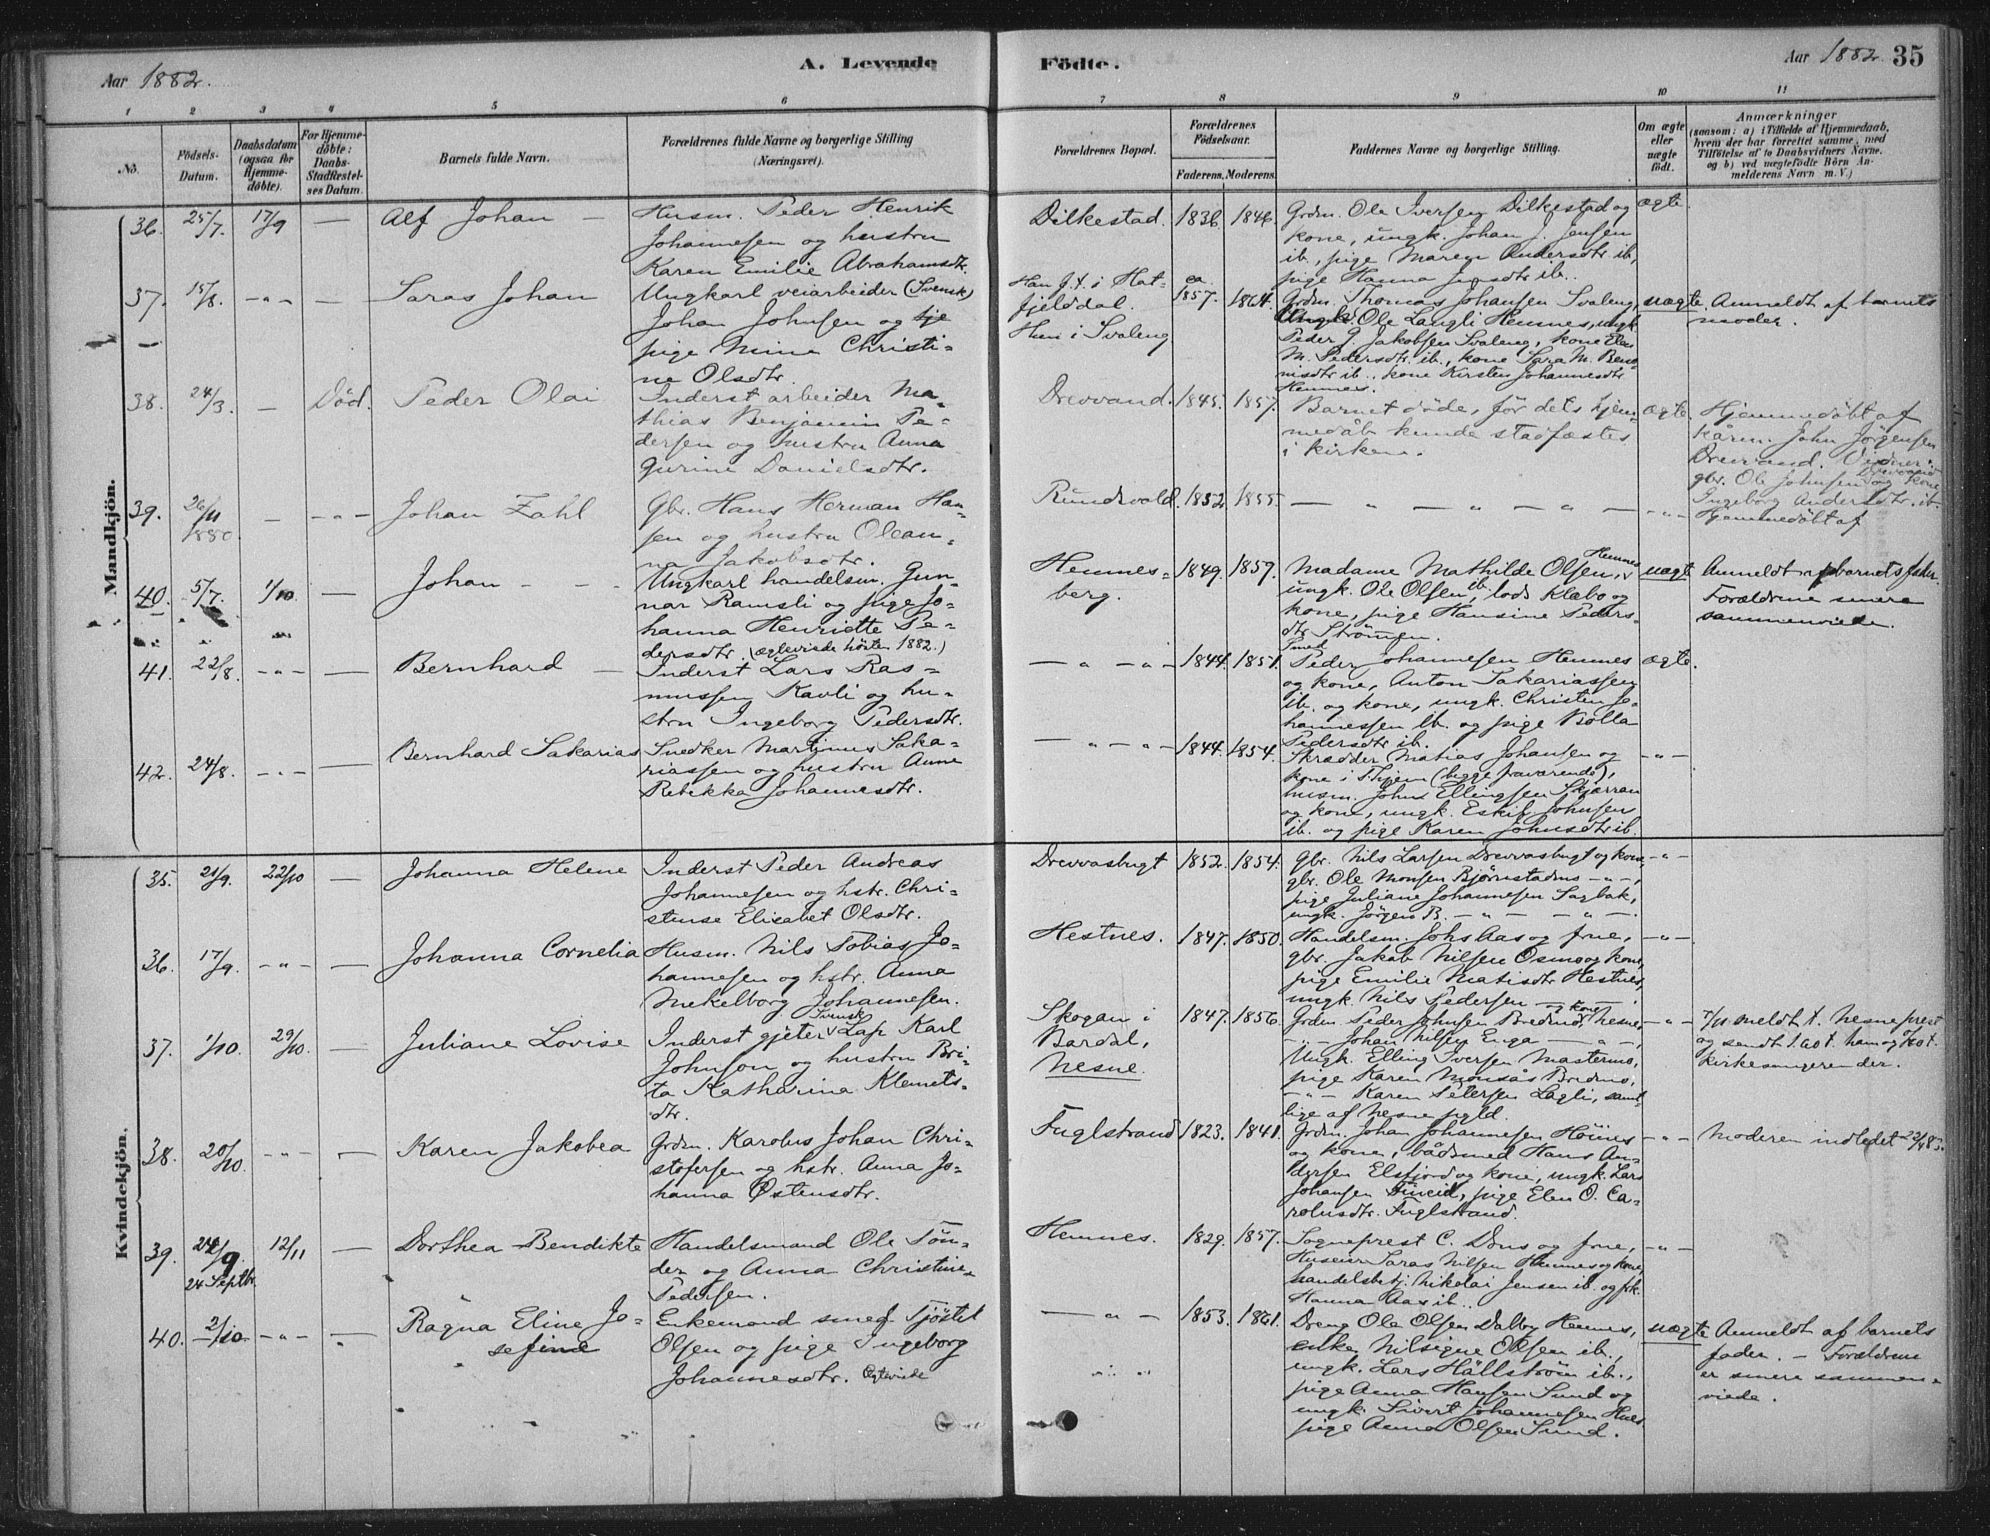 Aar 1882.
A. Levende
Fødte.
Aar 1882. 35
1 2 3 4 5 6 7 8 9 10 11
No.
Fødsels-Datum.
Daabsdatum (ogsaa for Hjemmedøbte).
For Hjemmedøbte: Daabs-Stadfæstelses Datum.
Barnets fulde Navn.
Forældrenes fulde Navne og borgerlige Stilling (Næringsvei).
Forældrenes Bopæl.
Forældrenes Fødselsaar.
Faderens. Moderens.
Faddernes Navne og borgerlige Stilling.
Om ægte eller uægte født.
Anmærkninger
(saasom: a) i Tilfælde af Hjemmedaab, hvem der har forrettet samme, med Tilføielse af to Daabsvidners Navne, og b) ved uægtefødte Børn Anmelderens Navn m. V.)
Mandkjøn.
36. 25/7. 17/9 — Alf Johan —
Husm. Peder Henrik
Johannesen og hustru
Karen Emilie Abrahamsdtr.
Dilkestad. 1836. 1846.
Grdm. Ole Iversen Dilkestad og
kone, ungk. Johan J. Jensen
ib., pige Maren Andersdtr ib,
pige Hanna Jensdtr ib.
ægte.
37. 15/8. -"- — Saras Johan
Ungkarl veiarbeider (Svensk)
Johan Johnsen og
pige Mina Christi-
ne Olsdtr.
Han f.t. i Hat-
fjelddal.
Hun i Svaleng
ca. 1857. 1864.
Grdm. Thomas Johansen Svaleng,
Ole Langli Hemnes, ungk
Peder J. Jakobsen Svaleng, kone Elen
M. Pedersdtr ib., kone Sara M. Ben-
disdtr ib., kone Kirsten Johannesdtr
Hemnes.
uægte. Anmeldt af barnets
moder.
38. 24/3. — Död. Peder Olai
Inderst arbeider Ma-
thias Benjamin Pe-
dersen og hustru Anna
Gurine Danielsdtr.
Drevvand. 1845. 1857.
Barnet döde, för dets hjem-
medåb kunde stadfæstes
i kirken.
ægte. Hjemmedöbt af
kårm. John Jörgensen
Drevvand. Vidner:
gbr. Ole Johnsen Drevvand og kone
Ingeborg Andersdtr. ib.
39. 26/11 1880. — -"- Johan Zahl
Gbr. Hans Herman Han-
sen og hustru Olean-
na Jakobsdtr.
Rundsvold. 1852. 1855. — " — " — " — -"-
Hjemmedöbt af
40. 5/7. 1/10. — Johan — -
Ungkarl handelsm. Gun-
nar Ramsli og pige Jo-
hanna Henriette Pe-
dersdtr. (ægteviede hösten 1882.)
Hemnes-
berg. 1849. 1859.
Madame Mathilde Olsen, Hemnes
ungk. Ole Olsen ib, lods Klæbo og
kone, pige Hansine Peders-
dtr Strömmen.
uægte Anmeldt af barnets fader.
Forældrene senere
sammenviede.
41. 22/8. -"- — Bernhard —
Inderst Lars Ras-
mussen Ravli og hu-
stru Ingeborg Pedersdtr.
— " — " — 1844. 1851.
Smed Peder Johannesen Hemnes
og kone, Anton Sakariassen
ib. og kone, ungk. Christen Jo-
hannessen ib. og pige Bolla
Pedersdtr ib.
ægte.
42. 24/8. -"- — Bernhard Sakarias
Snedker Martinus Saka-
riassen og hustru Anne
Rebekka Johannesdtr.
— " — " — 1844. 1854.
Skrædder Matias Johansen og
kone i (begge fraværende),
husm. Johns Ellingsen Skjærran
og kone, ungk. Eskil Johnsen
ib. og pige Karen Johnsdtr ib.
-"-
Kvindekjøn.
35. 21/9. 22/10 — Johanna Helene
Inderst Peder Andreas
Johannesen og hstr. Chri-
stense Elisabet Olsdtr.
Drevvasbugt 1852. 1854.
Gbr. Nils Larsen Drevvasbugt og kone,
gbr. Ole Monsen Bjørnstadmo -"-,
pige Juliane Johannesen Sagbak,
ungk. Jörgen B. — " — " —.
-"-
36. 17/9. -"- — Johanna Cornelia
Husm. Nils Tobias Jo-
hannesen og hstr. Anna
Mekelborg Johannesen.
Hestnes. 1847. 1850.
Handelsm. Johs Aas og frue,
gbr. Jakob Nilsen Osmo og kone,
pige Emilie Matisdtr Hestnes,
ungk. Nils Pedersen — " —.
-"-
37. 1/10. 29/10. — Juliane Lovise
Inderst gjeter Svensk Lap Karl
Johnson og hustru Bri-
ta Katharina Klemets-
dtr.
Skogan i
Bardal,
Nesne. 1847. 1856.
Grdm. Peder Johnsen Bredmo og kone, Nesne,
-"- Johan Nilsen Enga — " —,
Ungk. Elling Iversen Mastermo,
pige Karen Monsås Bredmo,
-"- Karen Petersen Lagli, samt-
lige af Nesne pgld.
-"- 7/11 meldt t. Nesne prest
og sendt 1.60 t. ham og 0/60 t.
kirkesangeren der.
38. 20/10. -"- — Karen Jakobea
Grdm. Karolus Johan Chri-
stofersen og hstr. Anna Jo-
hanna Østensdtr.
Fuglstrand 1823. 1841.
Grdm. Johan Johannesen
og kone, bådsmed Hans An-
dersen Elsfjord og kone, ungk. Lars
Johansen Fineid, pige Elen O. Ca-
rolusdtr. Fuglstrand.
-"- Moderen indledet
39. 24/9 24 Septbr. 12/11 — Dorthea Bendikte
Handelsmand Ole Tön-
der og Anna Christine
Pedersen.
Hemnes. 1829. 1857.
Sogneprest C. Dons og frue,
Husm. Saras Nilsen Hemnes og kone,
handelsbetj. Nikolai Jensen ib. og frk.
Hanna Aas ib.
-"-
40. 2/10 -"- — Ragna Eline Jo-
sefine
Enkemand smed Tjöstel
Olsen og pige Ingeborg
Johannesdtr. Ægteviede
— " — 1853. 1861.
Dreng Ole Olsen Dalby Hemnes,
enke Nilsigne Olsen ib.,
ungk. Lars Hällström ib.,
pige Anna Hansen Sund og
ungk. Sivert Johannesen
pige Anna Olsen Sund.
uægte Anmeldt af barnets
fader. — Forældrene
er senere sammen-
viede.